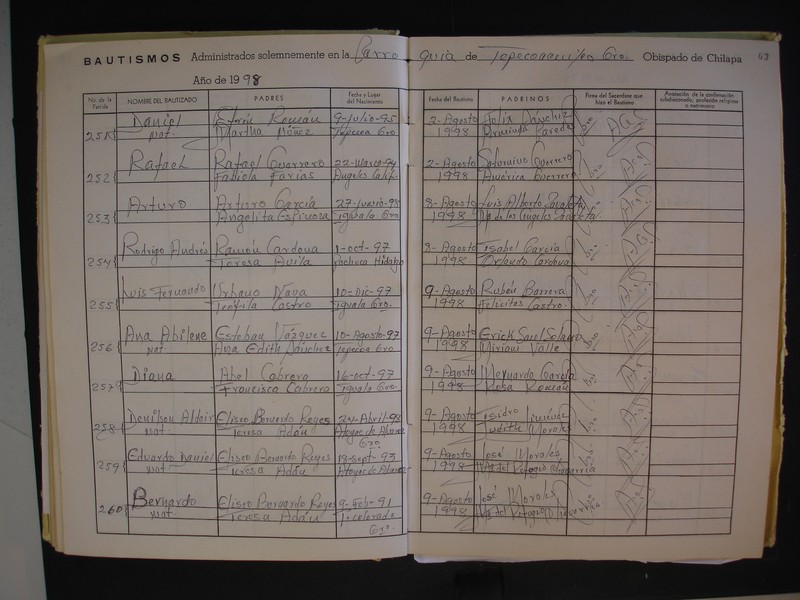 BAUTISMOS Administrados solemnemente en la Parro quia de Tepecoacuilco Gro. Obispado de Chilapa 63
Año de 1998
No. de la Partida NOMBRE DEL BAUTIZADO PADRES Fecha y Lugar del Nacimiento Fecha del Bautismo PADRINOS Firma del Sacerdote que hizo el Bautismo Anotación de la confirmación subdiaconado, profesión religiosa o matrimonio
Daniel Efrén Román 9-Julio-95 2-Agosto Félix Sánchez
251 nat. Martha Núñez Tepecoa Gro 1998
Rafael Rafael Guerrero 22-Marzo-94 2-Agosto Saturnino Guerrero
252 Fabiola Farías Angeles Calif. 1998 América Guerrero
Arturo Arturo García 27-Junio-98 8-Agosto Luis Alberto
253 Angelita Espinoza Iguala Gro 1998 Ma de los Angeles
Rodrigo Andrés Ramón Cardova 1-oct-97 8-Agosto Isabel García
254 Teresa Avila Pachuca Hidalgo 1998 Orlando Cardova
Luis Fernando Urbano Nava 10-Dic-97 9-Agosto Rubén Barrera
255 Teofila Castro Iguala Gro. 1998 Felicitas Castro
Ana Abilene Esteban Vázquez 10-Agosto-97 9-Agosto Erick Saul
256 nat. Ana Edith Sánchez Tepecoa Gro 1998 Miriam Valle
Diana Abel Cabrera 16-oct-97 9-Agosto Bernardo García
257 Francisca Cabrera Iguala Gro. 1998 Rosa Román
Denilson Aldair Eliseo Bernardo Reyes 24-Abril-98 9-Agosto Isidro
258 nat. Teresa Adán Atoyac de Alvarez 1998 Judith Morales
Gro
Eduardo Daniel Eliseo Bernardo Reyes 13-Sept-93 9-Agosto José Morales
259 nat. Teresa Adán Atoyac de Alvarez 1998 Ma del Refugio
Bernardo Eliseo Bernardo Reyes 9-Feb-91 9-Agosto José Morales
260 nat. Teresa Adán 1998 Ma del Refugio
Gro.